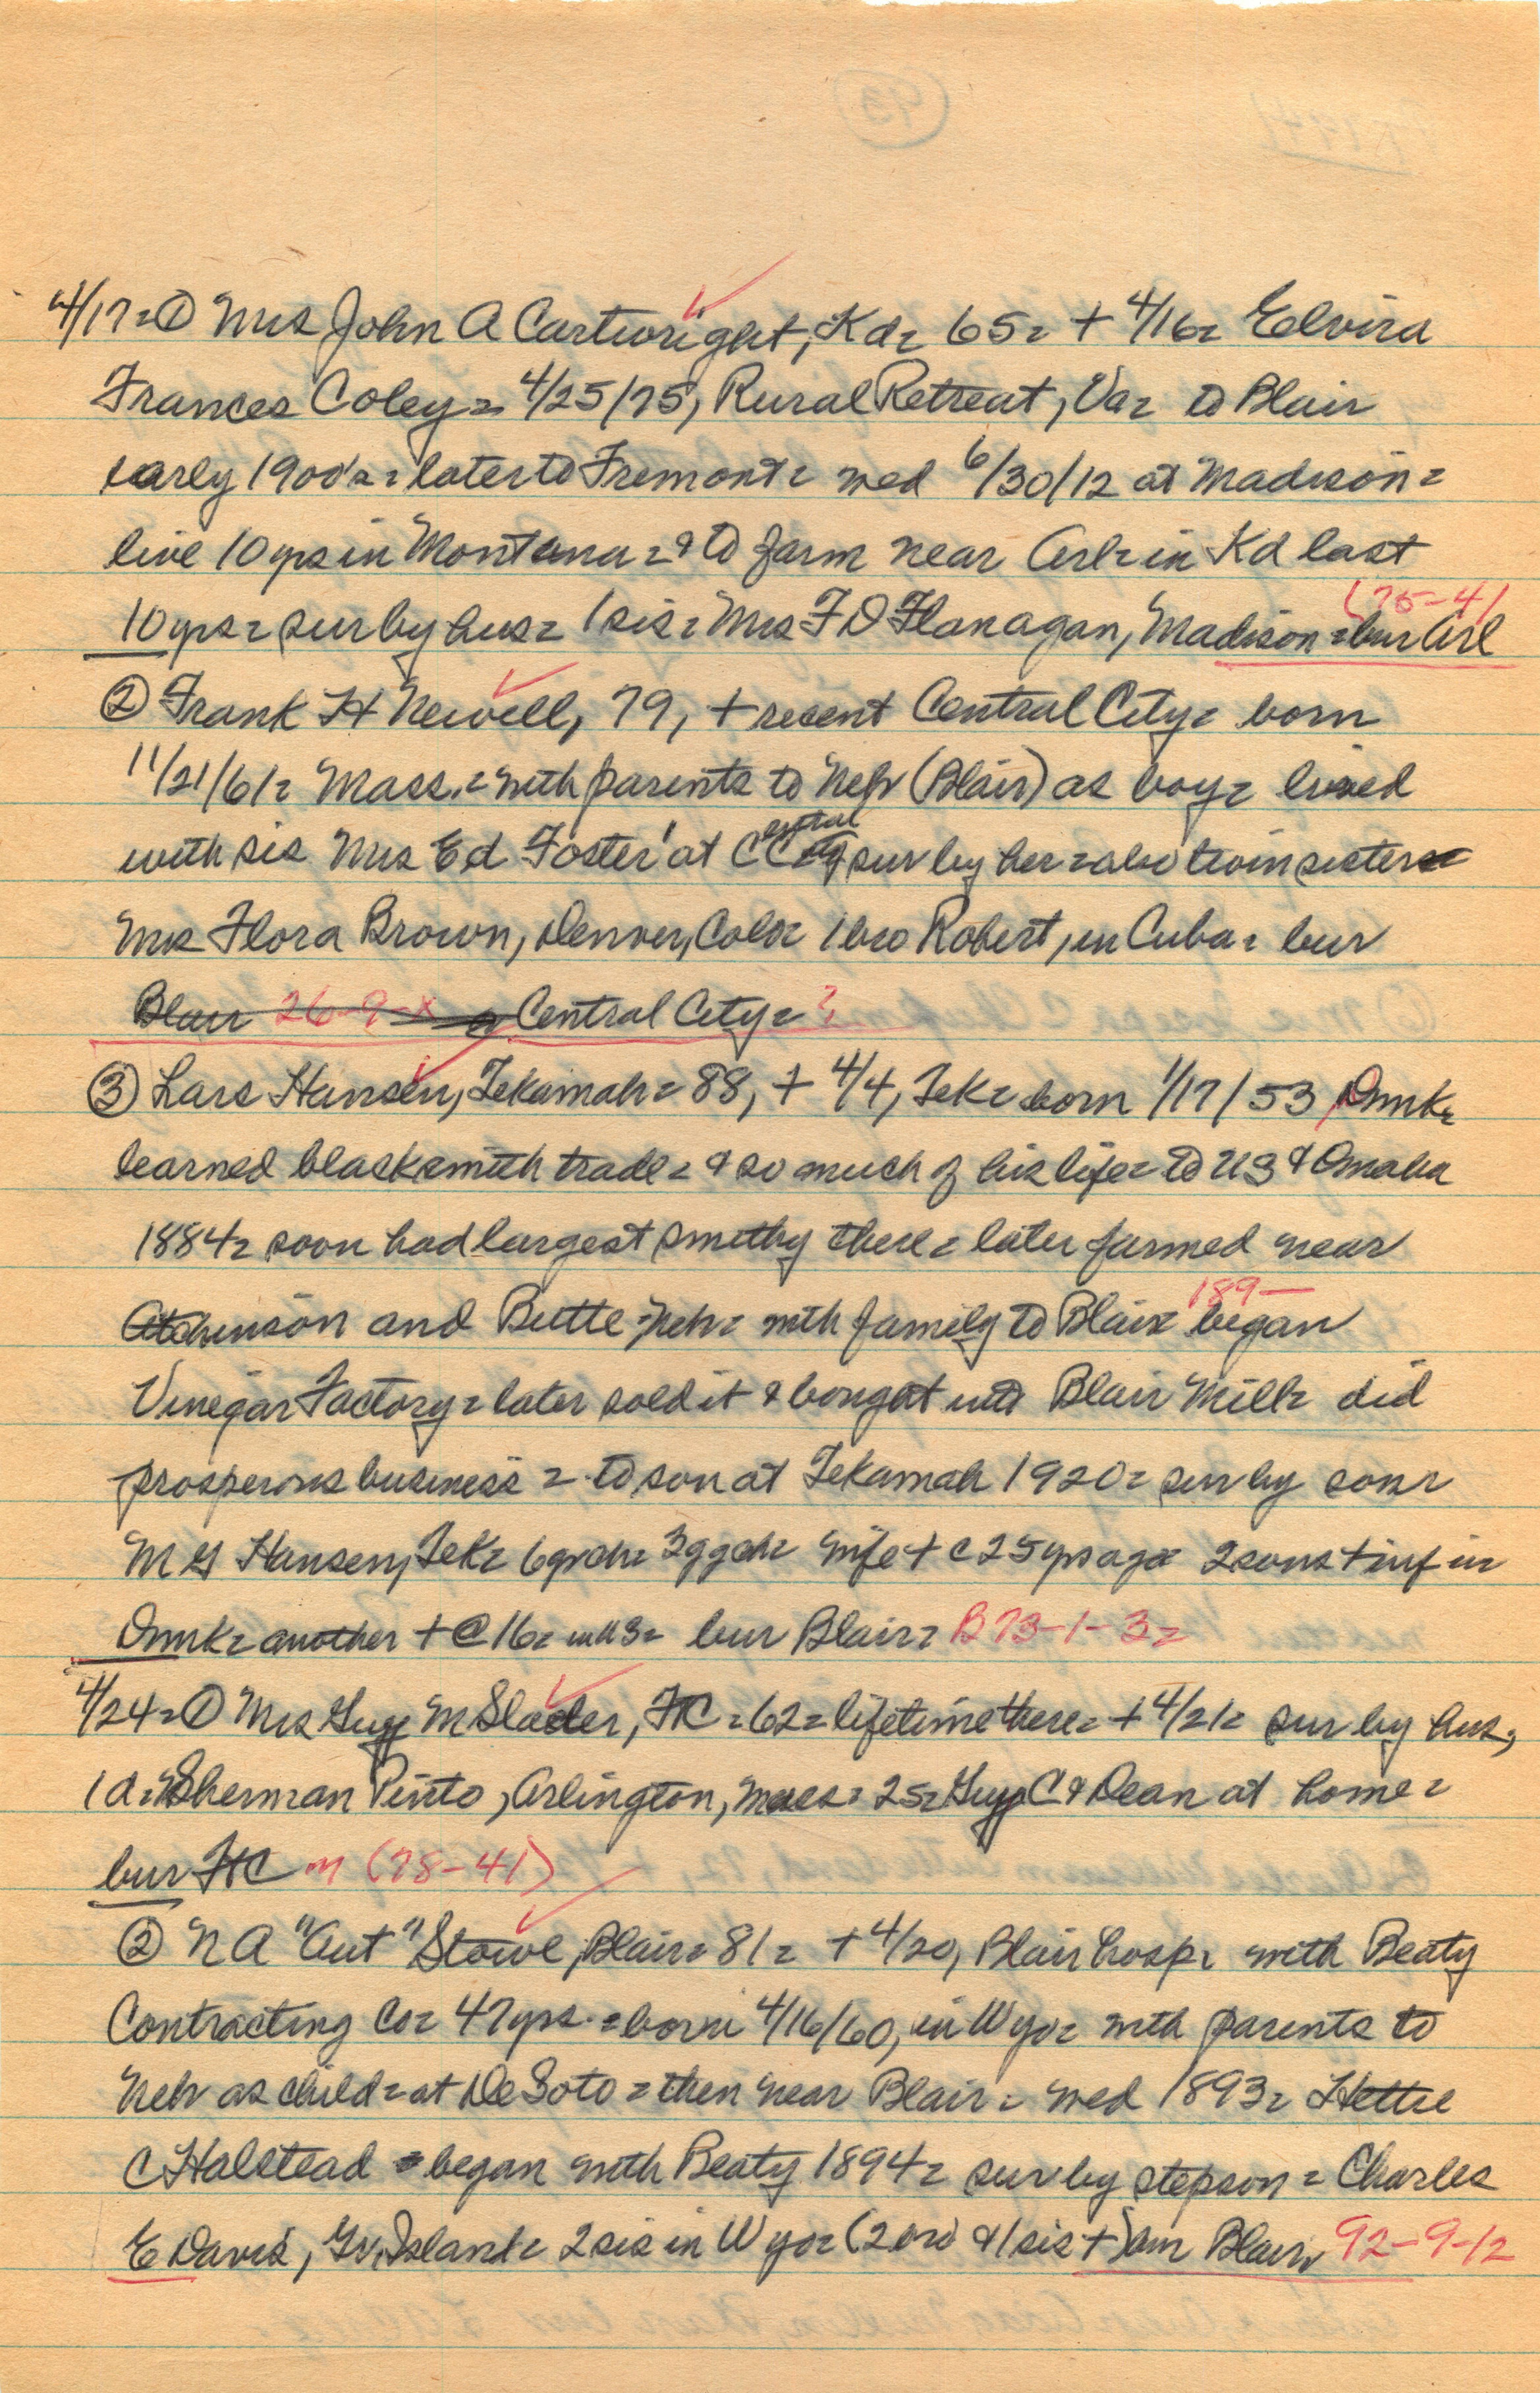 4/17=① Mrs John A Cartwright, Kd= 65= + 4/16= Elvira
Frances Coley= 4/25/75, Rural Retreat, Va= to Blair
early 1900's= later to Fremont= wed 6/30/12 at Madison=
live 10 yrs in Montana= & to farm near Arl= in Kd last
(75-41
10 yrs= sur by hus= 1 sis= Mrs F D Flanagan, Madison= bur Arl
② Frank H Newell, 79, + recent Central City= born
11/21/61= Mass.= with parents to Neb (Blair) as boy= lived
with sis Mrs Ed Foster at C City sur by her= also twin sister
entral
Mrs Flora Brown, Denver, Colo= 1 bro Robert, in Cuba= bur
Blair 26-9-x Central City= ?
③ Lars Hansen, Tekamah= 88, + 4/4, Tek= born 1/17/53 Dnmk=
learned blacksmith trade= & so much of his life= to US & Omaha
1884= soon had largest smithy there= later farmed near
189-
Atchinson and Butte Neb= with family to Blair= began
Vinegar Factory= later sold it & bought into Blair Mill= did
prosperous business= to son at Tekamah 1920= sur by son=
M G Hansen, Tek= 6 grch= 3 ggch= wife + c 25 yrs ago= 2 sons + inf in
Dnmk= another + @ 16= in US= bur Blair= B 73-1-3=
4/24=① Mrs Guy M Slader, FC= 62= lifetime there= + 4/21= sur by hus,
1 d= Sherman Pinto, Arlington, Mass= 2s= Guy C & Dean at home=
bur FtC m (78-41)
② N A "Aut" Stowe, Blair= 81= + 4/20, Blair hosp= with Beaty
Contracting Co= 47 yrs.= born 4/16/60, in Wyo= with parents to
Neb as child= at De Soto= then near Blair= wed 1893= Hettie
C Halstead= began with Beaty 1894= sur by stepson= Charles
E Davis, Gr Island= 2 sis in Wyo= (2 bro & 1 sis +) bur Blair= 92-9-12